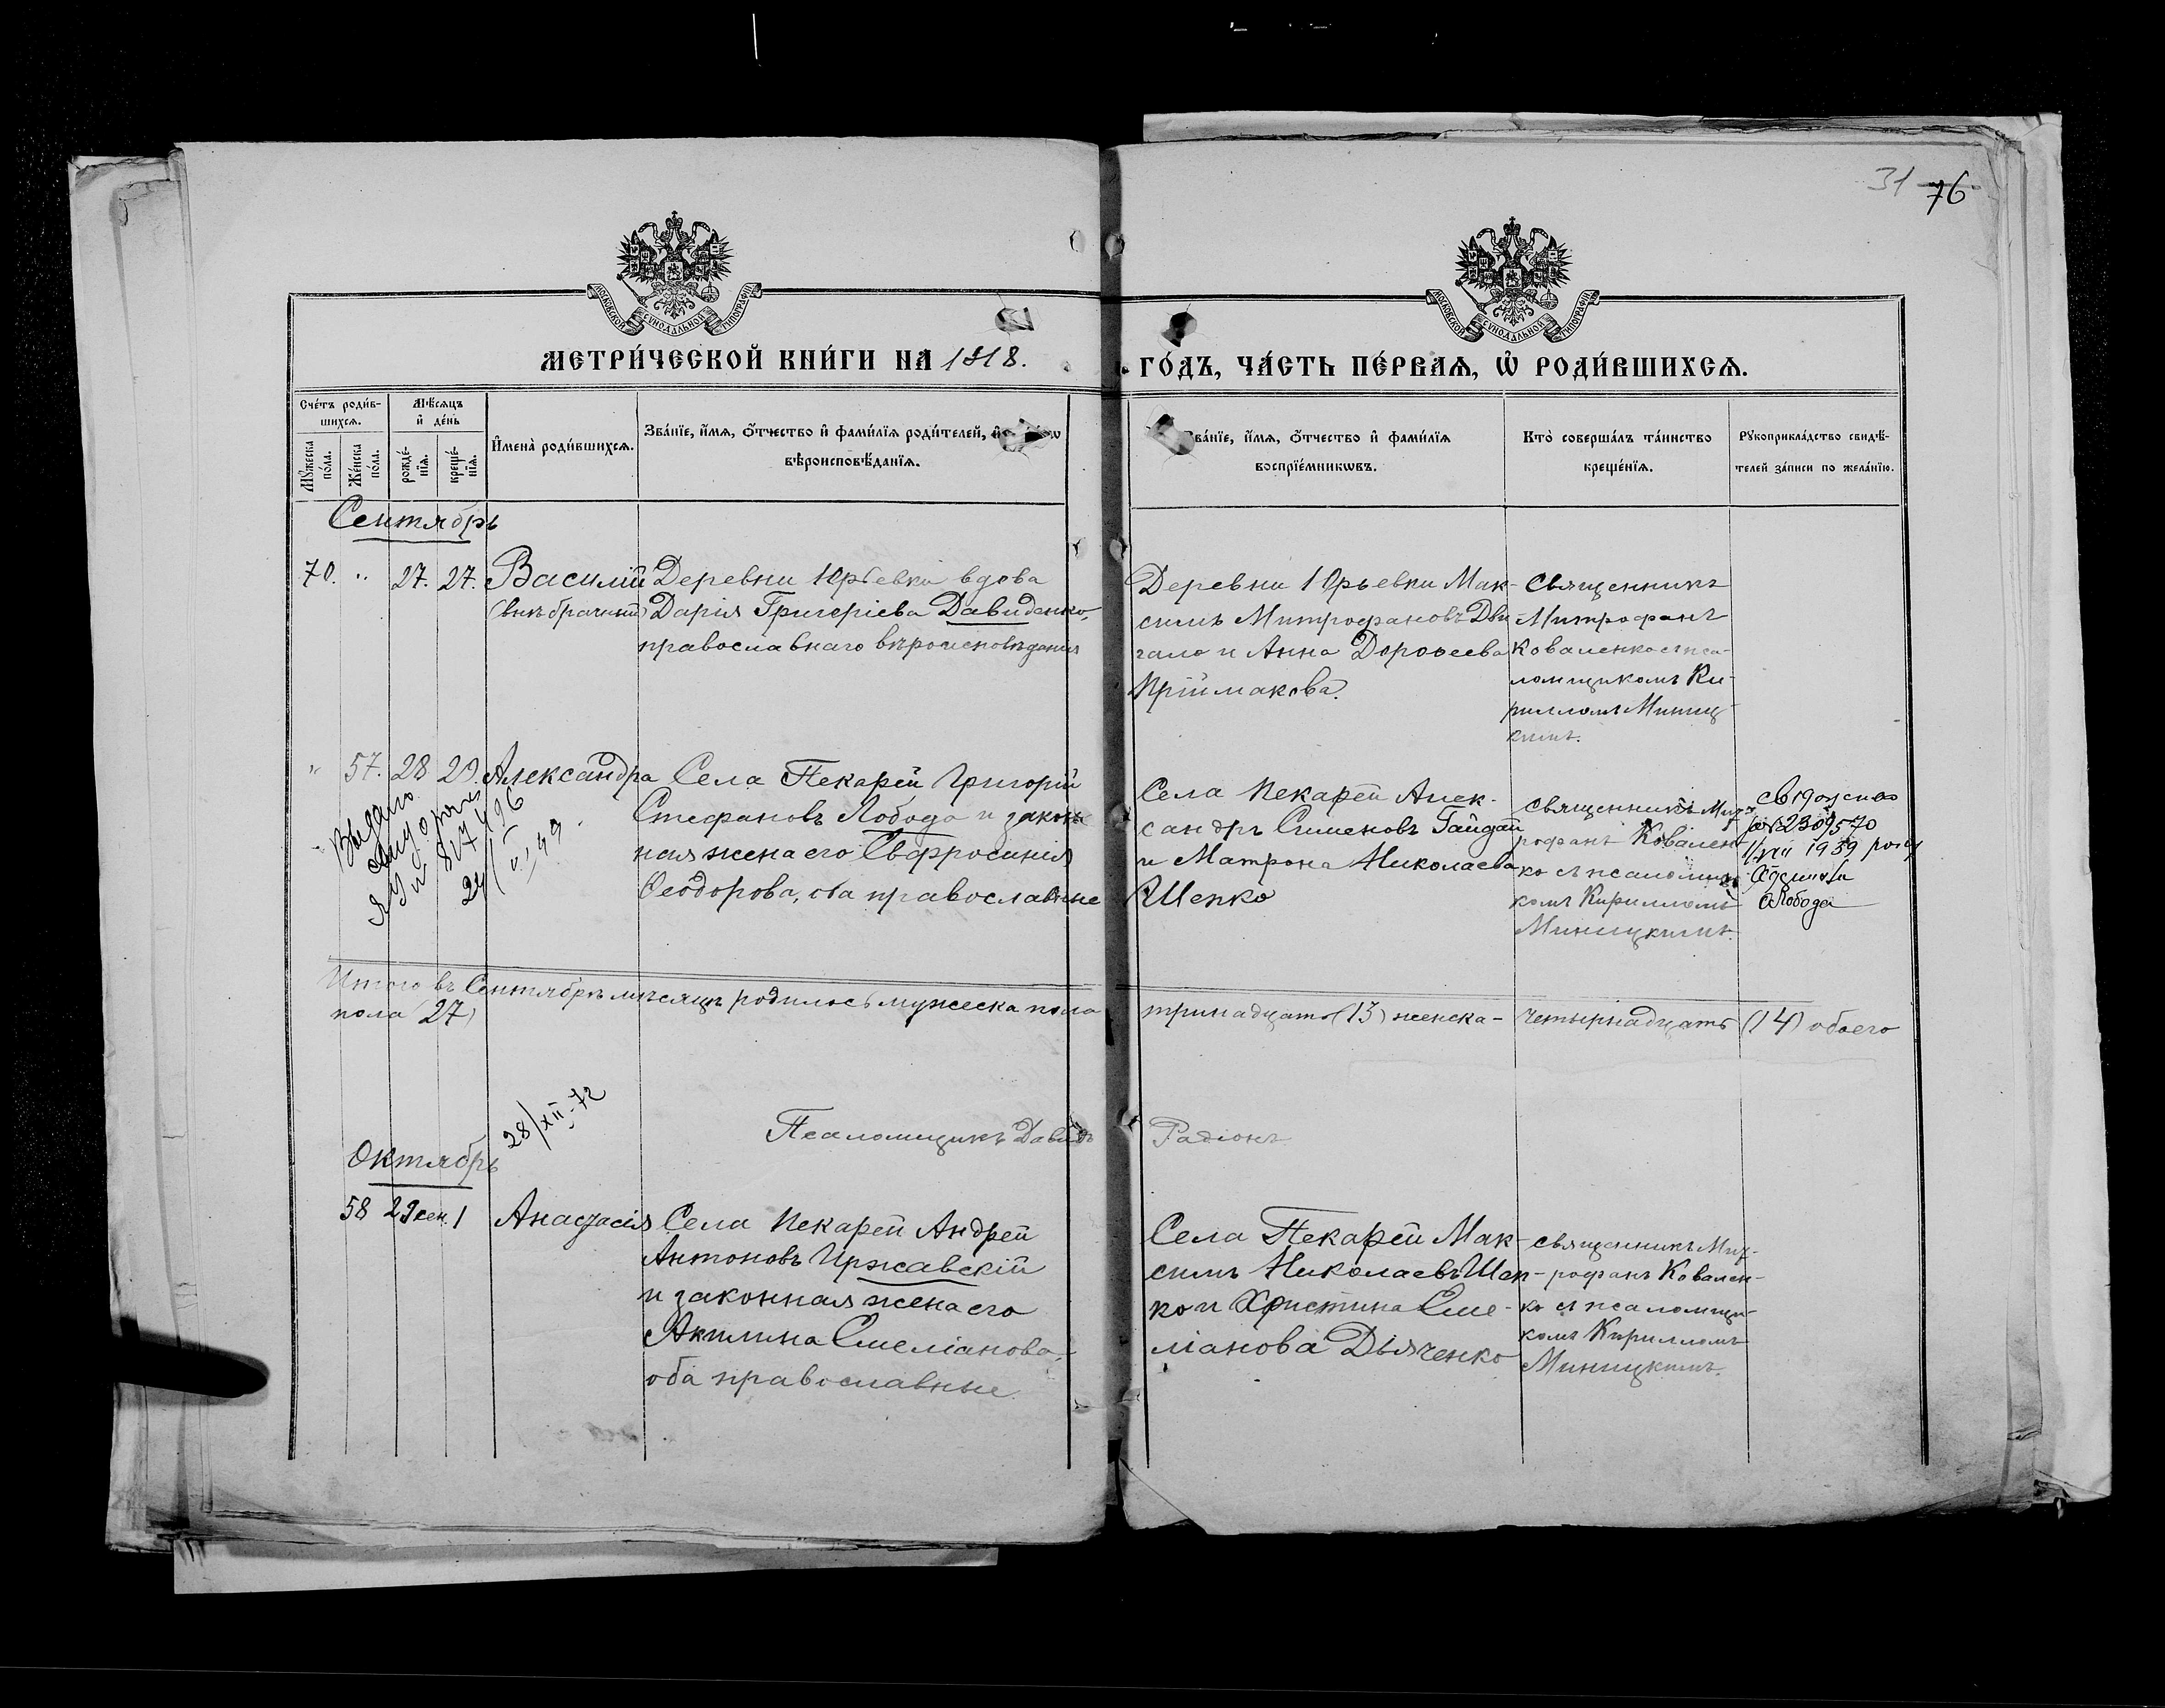 31 76
МОСКОВСКОЙ СУНОДАЛЬНОЙ ТИПОГРАФІИ
МОСКОВСКОЙ СУНОДАЛЬНОЙ ТИПОГРАФІИ
МЕТРИ́ЧЕСКОЙ КНИ́ГИ НА 1918.
ГО́ДЪ, ЧА́СТЬ ПЕ́РВАѦ, Ѡ҆ РОДИ́ВШИХСѦ.
Сче́тъ роди́в-
шихсѧ.
Мѣ́сѧцъ
и҆ де́нь
Мꙋ́жеска
по́ла.
Же́нска
по́ла.
рожде́-
нїѧ.
креще́-
нїѧ.
И҆мена̀ роди́вшихсѧ.
Зва́нїе, и҆́мѧ, ѻ҆́тчество и҆ фами́лїѧ роди́телей,
вѣроисповѣ́данїѧ.
Зва́нїе, и҆́мѧ, ѻ҆́тчество и҆ фами́лїѧ
воспрїе́мникѡвъ.
Кто̀ соверша́лъ та́инство
креще́нїѧ.
Рꙋкоприкла́дство свидѣ́-
телей за́писи по жела́нїю.
Сентябрь
70. " 27. 27. Василій
(внѣбрачный)
Деревни Юрьевки вдова
Дарія Григоріева Давиденко,
православнаго вѣроисповѣданія
Деревни Юрьевки Мак-
симъ Митрофановъ Дви
гало и Анна Дороѳеева
Приймакова.
Священникъ
Митрофанъ
Коваленко съ пса-
ломщикомъ Ки-
рилломъ Миниц-
кимъ.
" 57. 28 29. Александра
Села Пекарей Григорій
Стефановъ Лобода и закон
ная жена его Евфросинія
Ѳеодорова, оба православные
Села Пекарей Алек-
сандръ Сименовъ Гайдай
и Матрона Николаева
Шепко
Священникъ Мит-
рофанъ Ковален
ко съ псаломщи
комъ Кирилломъ
Миницкимъ.
2309570
1939 року
Лобода
Выдано
ЯЧ 817496
Итого въ Сентябрѣ мѣсяцѣ родилось мужеска пола тринадцать (13) женска - четырнадцать (14) обоего
пола (27)
28/XII-72
Псаломщикъ Давидъ Радіонъ
Октябрь
58 29 сен. 1 Анастасія
Села Пекарей Андрей
Антоновъ Иржавскій
и законная жена его
Акилина Емеліанова,
оба православные
Села Пекарей Мак-
симъ Николаевъ Шеп-
ко и Христина Еме-
ліанова Дьяченко
Священникъ Мит-
рофанъ Ковален-
ко съ псаломщи-
комъ Кирилломъ
Миницкимъ.